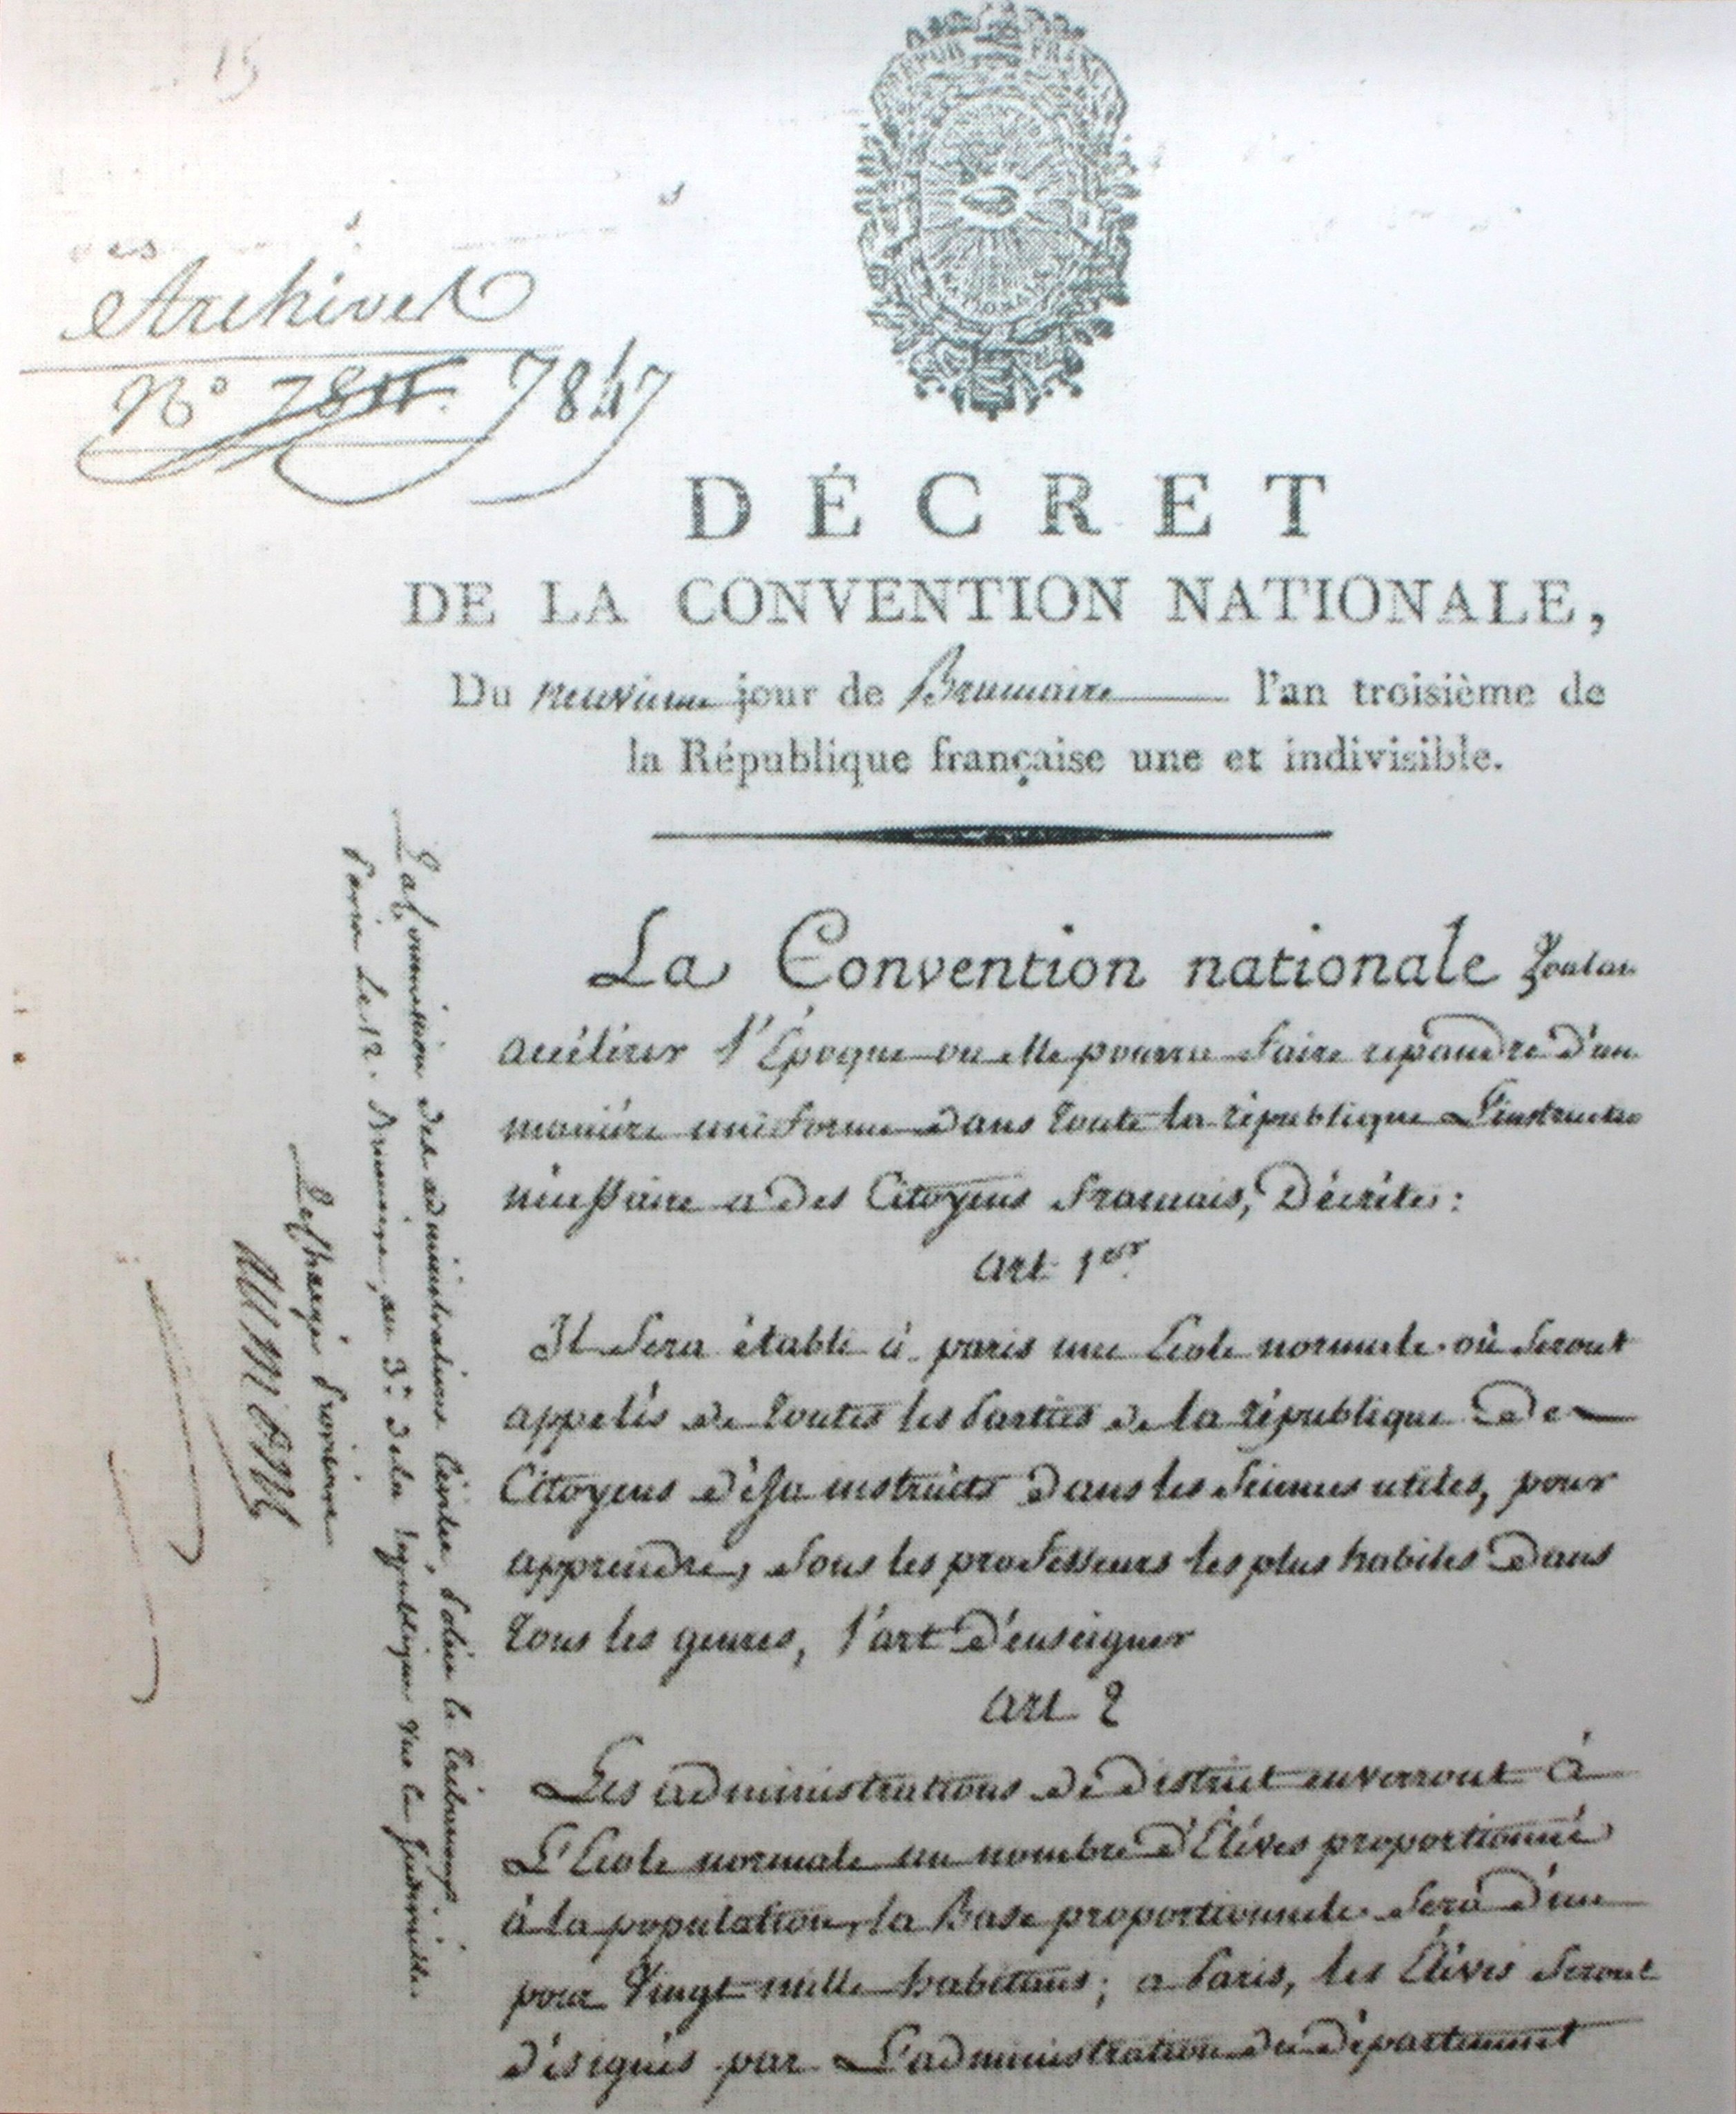 15
Archives
N° 7847
DÉCRET
DE LA CONVENTION NATIONALE,
Du neuvieme jour de Brumaire l'an troisième de
la République française une et indivisible.
La Convention nationale Voulant
accélérer l'Époque ou elle pourra faire repandre d'une
maniére uniforme dans toute la république L'instruction
nécessaire a des Citoyens francais, Décréte :
art 1er
Il sera établi à paris une Ecole normale où seront
appelés de toutes les parties de la république de
Citoyens déja instruits dans les sciences utiles, pour
apprendre, sous les professeurs les plus habiles dans
tous les genres, l'art d'enseigner
art 2
Les administrations de district enverront à
L'Ecole normale un nombre d'Eléves proportionné
à la population, la Base proportionnele sera d'un
pour Vingt mille habitans ; a paris, les Eléves seront
désignés par L'administration du département
La Commission des administrations Civiles, Police et Tribunaux.
Paris le 12. Brumaire, an 3e de la République Une et Indivisible.
Le Chargé Provisoire